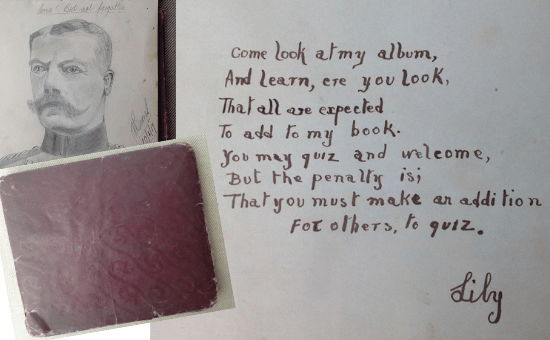 Gone but not forgotten
Come look at my album,
And learn, ere you look,
That all are expected
To add to my book.
You may quiz and welcome,
But the penalty is;
That you must make an addition
For others, to quiz.
Lily